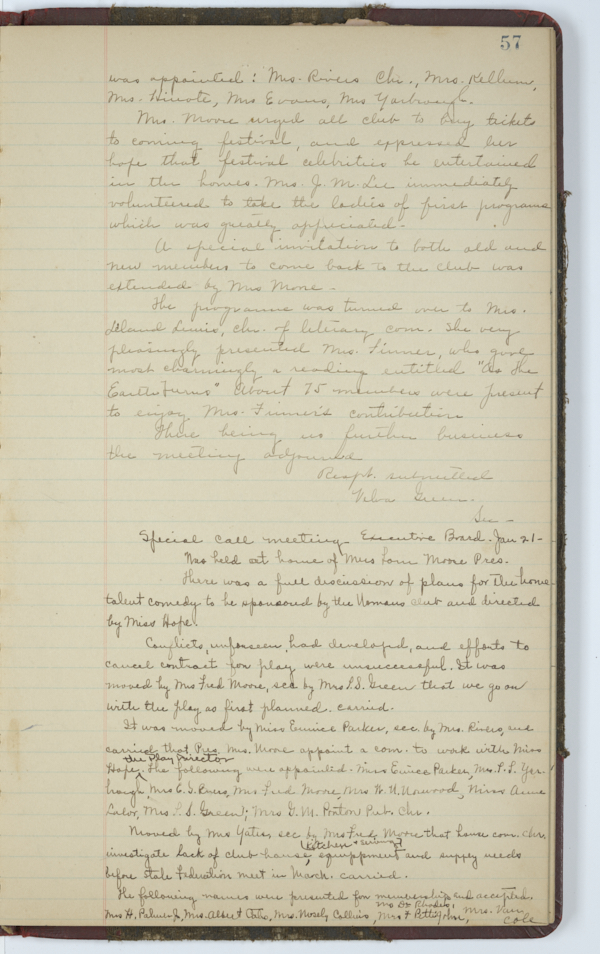 57
was appointed: Mrs. Rivers Chr., Mrs. Kellum,
Mrs. Hinote, Mrs Evans, Mrs Yarbrough.
Mrs. Moore urged all club to buy tickets
to coming festival, and expressed her
hope that festival celebrities be entertained
in the homes. Mrs. J. M. Lee immediately
volunteered to take the ladies of first programe
which was greatly appreciated.
A special invitation to both old and
new members to come back to the club was
extended by Mrs Moore.
The programe was turned over to Mrs.
Leland Lewis, chr. of literary com. She very
pleasingly presented Mrs. Finner, who gave
most charmingly a reading entitled "As the
Earth Turns" About 75 members were present
to enjoy Mrs. Finner's contribution
There being no further business
the meeting adjourned
Respt. submitted
Velva Green.
Sec -
Special call meeting Executive Board. Jan 21-
Was held at home of Mrs Lorn Moore Pres.
There was a full discussion of plans for the home
talent comedy to be sponsored by the Womans club and directed
by Miss Hope.
Conflicts, unforseen, had developed, and efforts to
cancel contract for play were unsuccessful. It was
moved by Mrs Fred Moore, sec by Mrs P.S. Green that we go on
with the play as first planned. carried.
It was moved by Miss Eunice Parker, sec. by Mrs. Rivers, and
carried that Pres. Mrs. Moore appoint a com. to work with Miss
the Play Director
Hope. The following were appointed. Miss Eunice Parker, Mrs. P. L. Yar-
brough, Mrs C. S. Rivers, Mrs Fred Moore, Mrs W. U. Norwood, Miss Anne
Lalor, Mrs. P. S. Green; Mrs G. M. Ponton Pub. Chr.
Moved by Mrs Yates, sec by Mrs Fred Moore that house com. chr.
kitchen
investigate lack of club house, equippment and supply needs
before state Federation meet in March. carried.
The following names were presented for membership and accepted.
Mrs Dr. Rhodes,
Mrs H. Palmer Jr, Mrs. Albert Cato, Mrs. Collins, Mrs F Pettijohn, Mrs. Cole